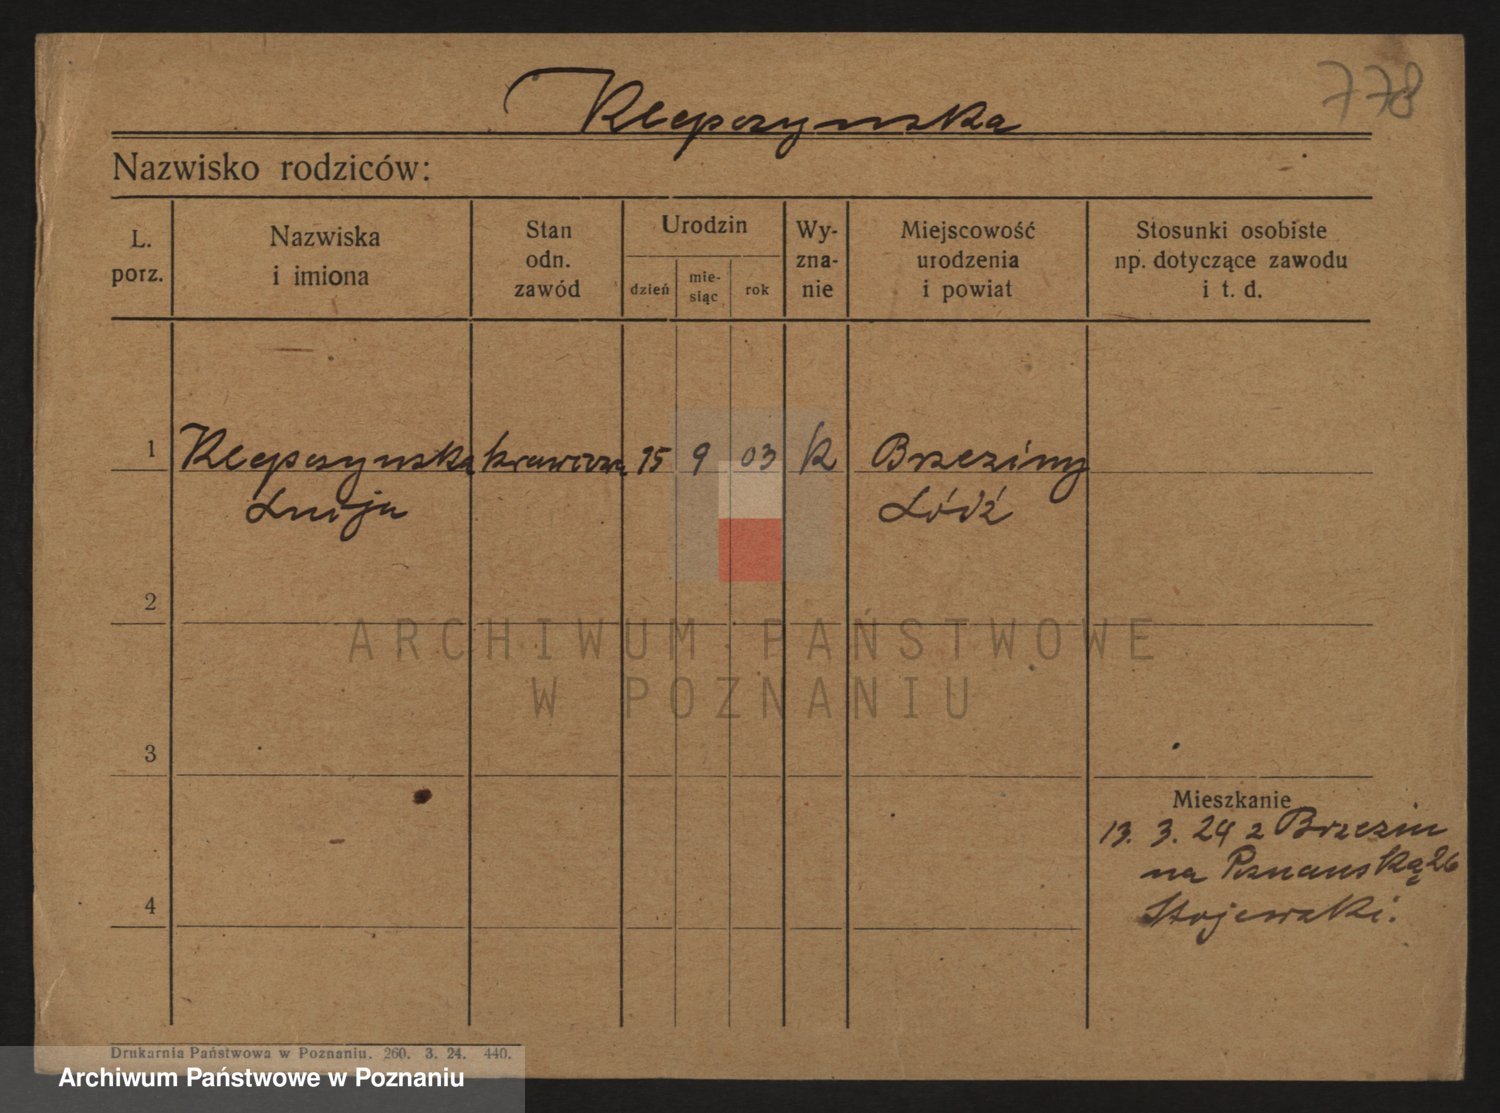 778
Klepczynska
Nazwisko rodziców:
L. porz.
Nazwiska i imiona
Stan odn. zawód
Urodzin
dzień
mie-siąc
rok
Wy-zna-nie
Miejscowość urodzenia i powiat
Stosunki osobiste np. dotyczące zawodu i t. d.
1 Klepczynska krawcowa 15 9 03 k Brzeziny
Łódź
2
ARCHIWUM PAŃSTWOWE
W POZNANIU
3
Mieszkanie
13. 3. 24 z Brzezin
na Poznanską 26
4
Drukarnia Państwowa w Poznaniu. 260. 3. 24. 440.
Archiwum Państwowe w Poznaniu